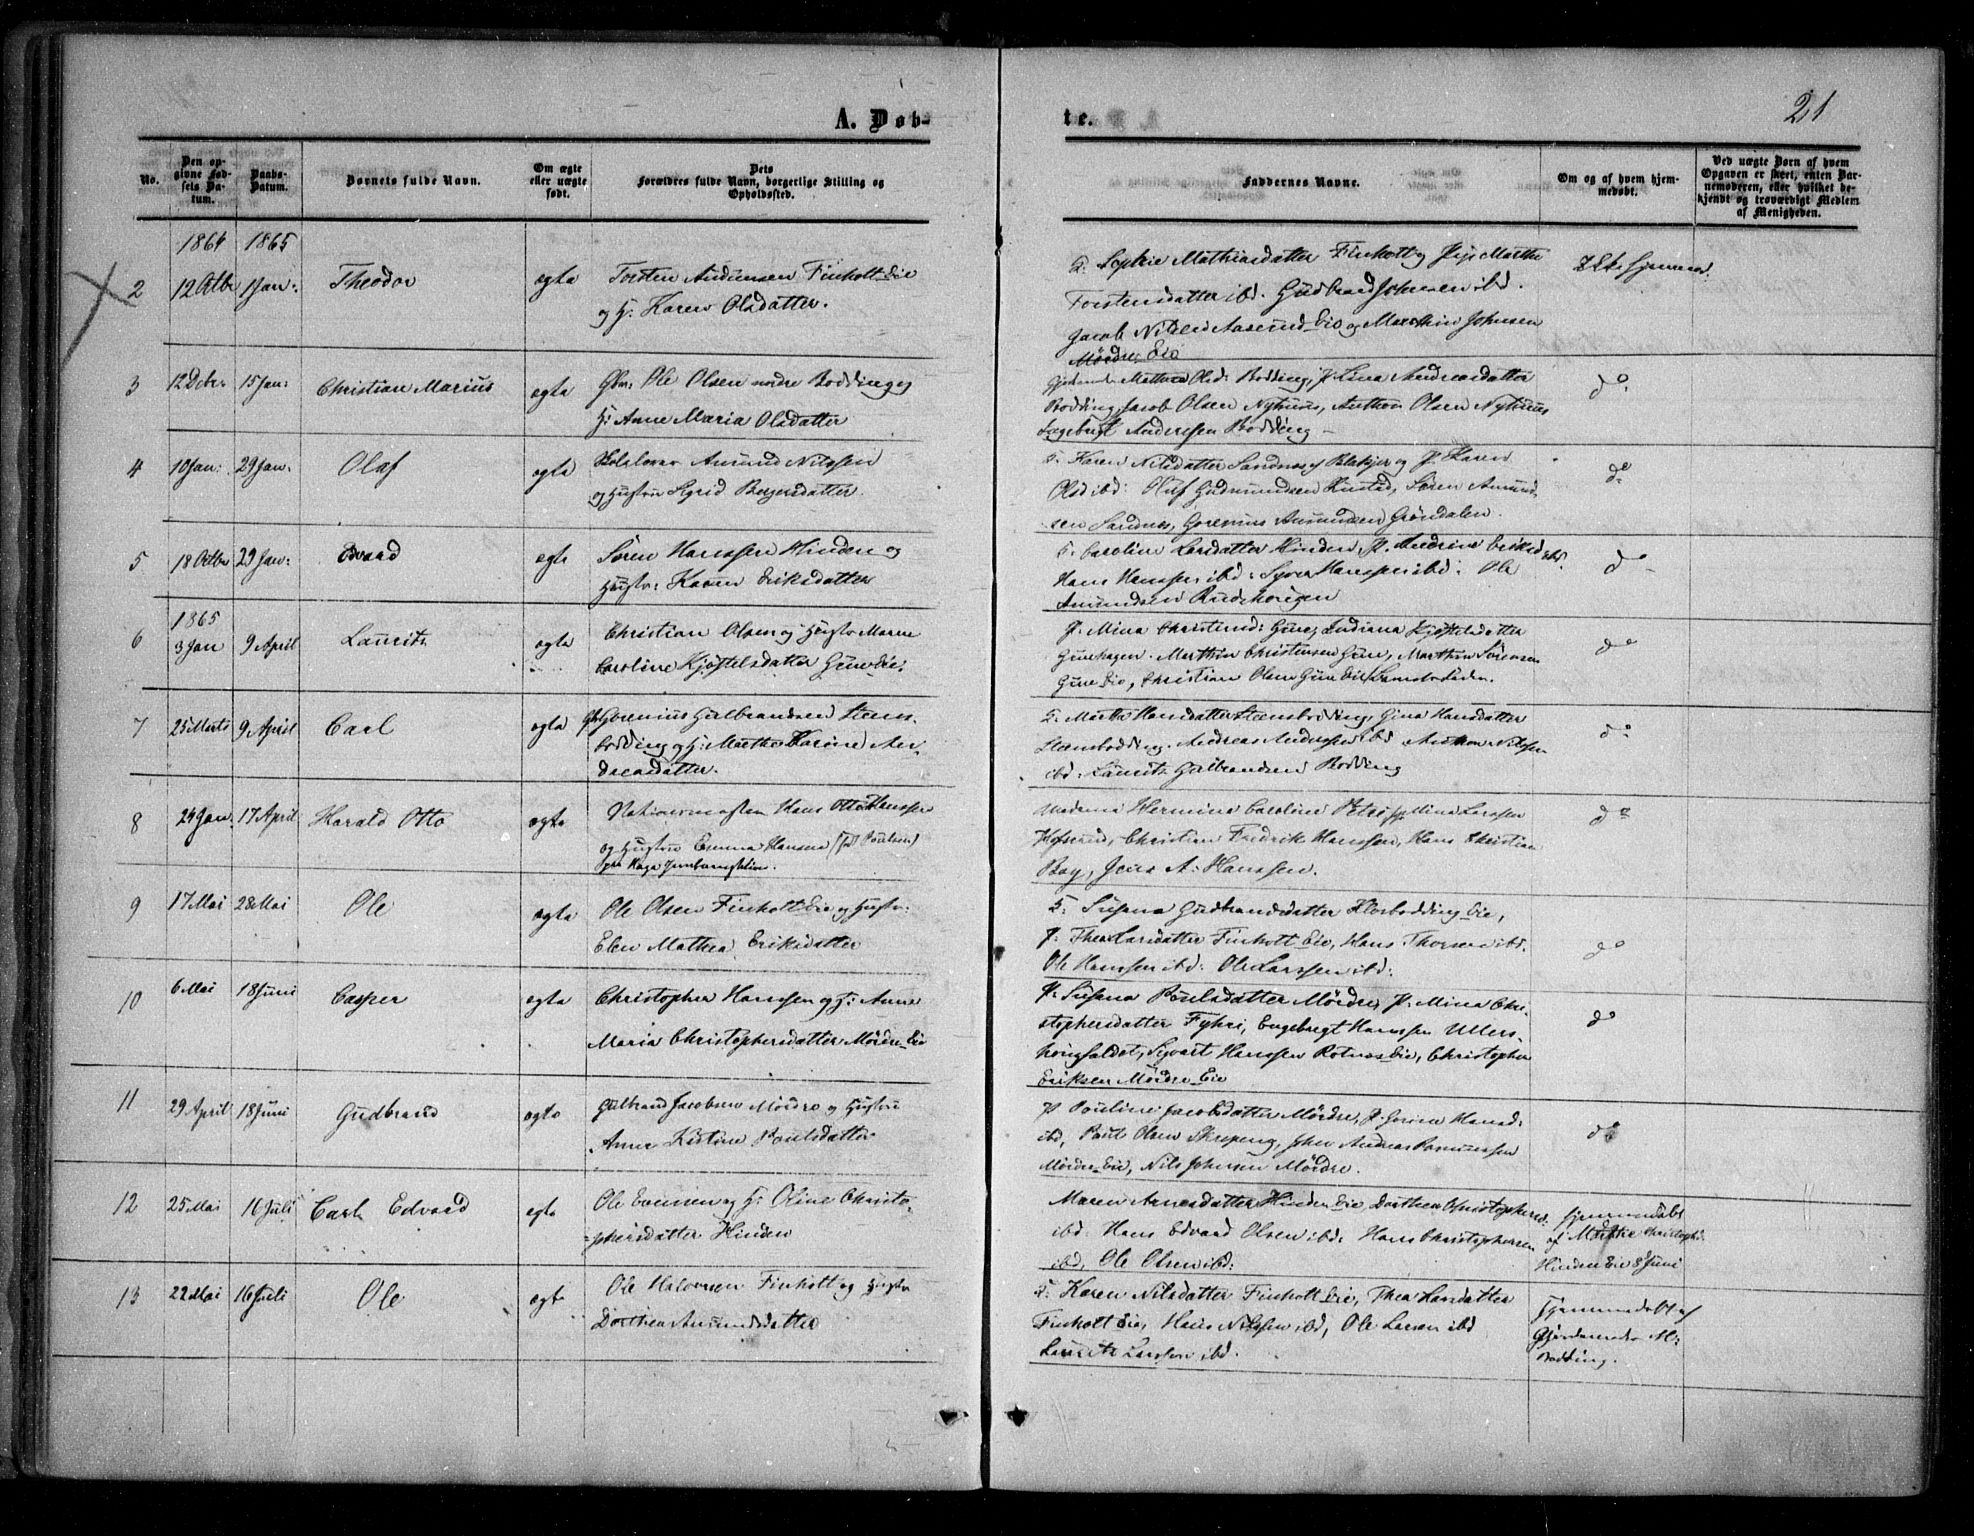 A. Døb-
te.
21
No.
Den op-
givne Fød-
sels Da-
tum.
Daabs-
Datum.
Barnets fulde Navn.
Om ægte
eller uægte
født.
Dets
Forældres fulde Navn, borgerlige Stilling og
Opholdssted.
Faddernes Navne.
Om og af hvem hjem-
medøbt.
Ved uægte Børn af hvem
Opgaven er skeet, enten Bar-
nemoderen, eller hvilket be-
kjendt og troværdigt Medlem
af Menigheden.
1864 1865
2 12 Otbr 1 Jan: Theodor ægte Torsten Andersen Finholt Eie
og H: Karen Olsdatter.
Sophie Mathiasdatter Finholt, Pige Marthe
Torstensdatter ibd. Gudbrand Johnsen ibd.
Jacob Nilsen Aaserud Eie og Marthin Johnsen
Mørdre Eie
3 12 Debr 15 Jan: Christian Marius ægte Gbr: Ole Olsen nordre Bodding og
H: Anne Maria Olsdatter
Mathea Olsd: Bodding, P. Lina Andreasdatter
Bodding, Jacob Olsen Nyhuus, Anthon Olsen Nyhuus
Ingebrigt Andersen Bodding
do
4 10 Jan: 29 Jan. Olaf ægte Amund Nilssen
og Hustru Sigrid Birgersdatter.
Karen Nilsdatter Sandnes og P. Karen
Olsd ibd: Oluf Gudmundsen Søren Amund-
sen Sandnes, Gorenius Amundsen Grøndalen.
do
5 18 Otbr 29 Jan: Edvard ægte Søren Hanssen Hinden og
Hustr: Karen Eriksdatter
Caroline Larsdatter Hinden, P. Andrine Eriksd ibd.
Hans Hanssen ibd: Syver Hanssen ibd: Ole
Amundsen
do
1865
6 3 Jan 9 April Laurits ægte Christian Olsen og Hustr Maren
Caroline Kjøstelsdatter Gune Eie.
P. Mina Christensd: Gune, Indiana Kjøstelsdatter
Gunehagen. Marthin Christensen Gune, Marthin Sørensen
Gune Eie, Christian Olsen Gune Eie
do
7 25 Marts 9 April Carl ægte Gbr Gorenius Gulbrandsen Steens-
bodding og H: Marthe Karine An-
dreasdatter.
Marthe Hansdatter Steensbodding, Gina Hansdatter
Steensbodding. Andreas Andersen ibd Anthon Nilssen
ibd: Laurits Gulbrandsen Bodding
do
8 24 Jan. 17 April Harald Otto ægte Hans Otto Hanssen
og Hustru Emma Hansen (fød Poulsen)
Madame Hermine Caroline Mina Larssen
Christian Fredrik Hanssen, Hans Christian
Boy, Jens A. Hanssen.
do
9 17 Mai 28 Mai Ole ægte Ole Olsen Finholt Eie og Hustr:
Elen Mathea Eriksdatter
Susana Gudbrandsdatter Eie,
P. Thea Larsdatter Finholt Eie, Hans Thorsen ibd.
Ole Hanssen ibd: Ole Larssen ibd:
do
10 6 Mai 18 Juni Casper ægte Christopher Hanssen og H: Anne
Maria Christophersdatter Mørdre Eie
P. Susana Poulsdatter Mørdre, P. Mina Chri-
stophersdatter Fyhri, Engebregt Hanssen
Syvert Hanssen Rotnes Eie, Christopher
Eriksen Mørdre Eie
do
11 29 April 18 Juni Gudbrand ægte Gulbrand Jacobsen Mørdre og Hustru
Anne Kistine Poulsdatter
P Pouline Jacobsdatter Mørdre, P. Hansd:
ibd, Poul Olsen John Andreas Rasmussen
Mørdre Eie, Nils Johnsen Mørdre.
do
12 25 Mai 16 Juli Carl Edvard ægte Ole Evensen og H: Oline Christo-
phersdatter Hinden
Maren Arnesdatter Hinden Eie Dorthea Christophersd:
ibd: Hans Edvard Olsen ibd: Hans Christophersen
ibd, Ole Olsen ibd:
hjemmedøbt
af Marthe Christophd.
Hinden Eie 8 Juni
13 22 Mai 16 Juli Ole ægte Ole Halvorsen Finholt og Hustru
Dorthea Amundsdatter
Karen Nilsdatter Finholt Eie, Thea Larsdatter
Finholt Eie, Hans Nilssen ibd, Ole Larsen ibd
Laurits Larssen ibd.
Hjemmedøbt af
M:
Bodding.